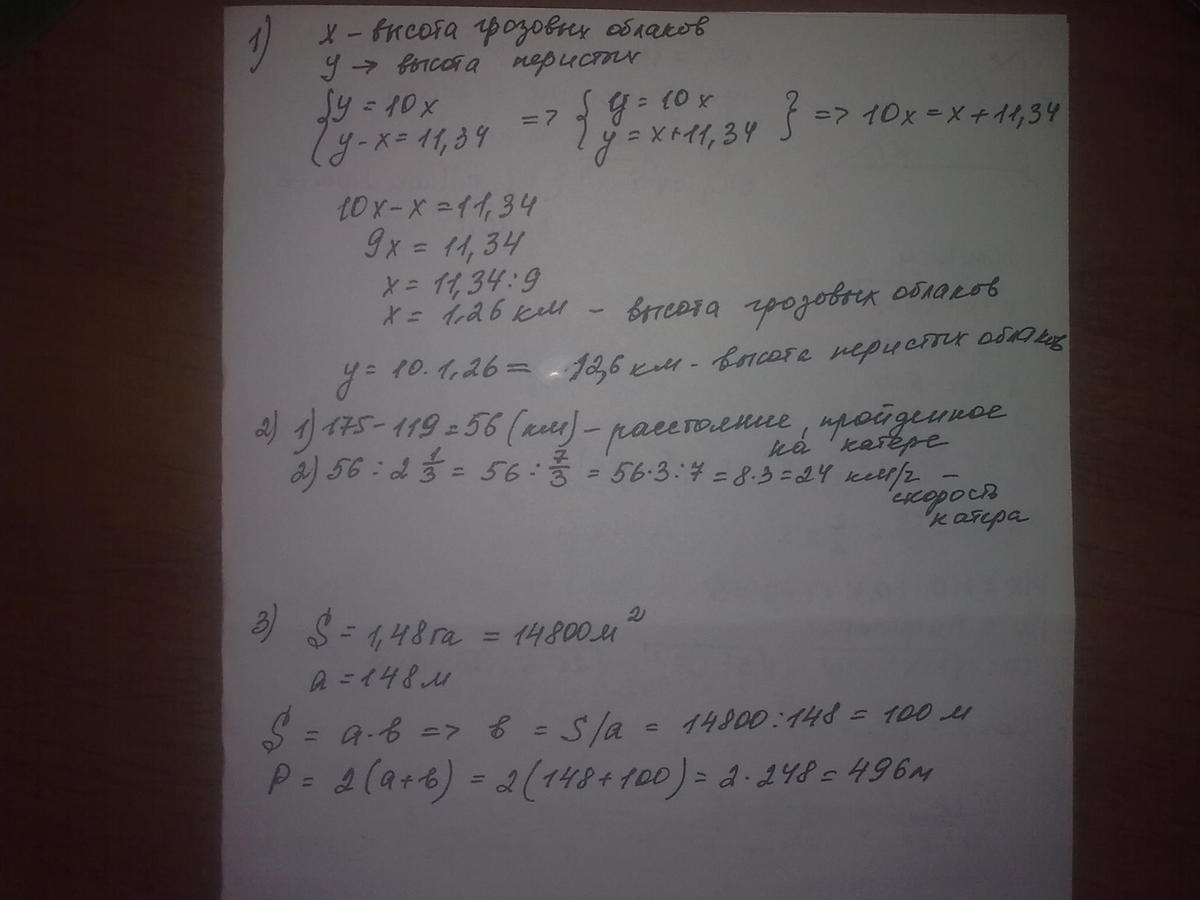 1) x – высота грозовых облаков
y → высота перистых
{y = 10x
y - x = 11,34 => {y = 10x
y = x + 11,34} => 10x = x + 11,34
10x - x = 11,34
9x = 11,34
x = 11,34 : 9
x = 1,26 км – высота грозовых облаков
y = 10 · 1,26 = 12,6 км - высота перистых облаков
2) 1) 175 - 119 = 56 (км) – расстояние, пройденное
на катере
2) 56 : 2 1/3 = 56 : 7/3 = 56 · 3 : 7 = 8 · 3 = 24 км/г –
скорость
катера
3) S = 1,48 га = 14800 м²
a = 148 м
S = a · в => в = S/a = 14800 : 148 = 100 м
P = 2(a + в) = 2(148 + 100) = 2 · 248 = 496 м